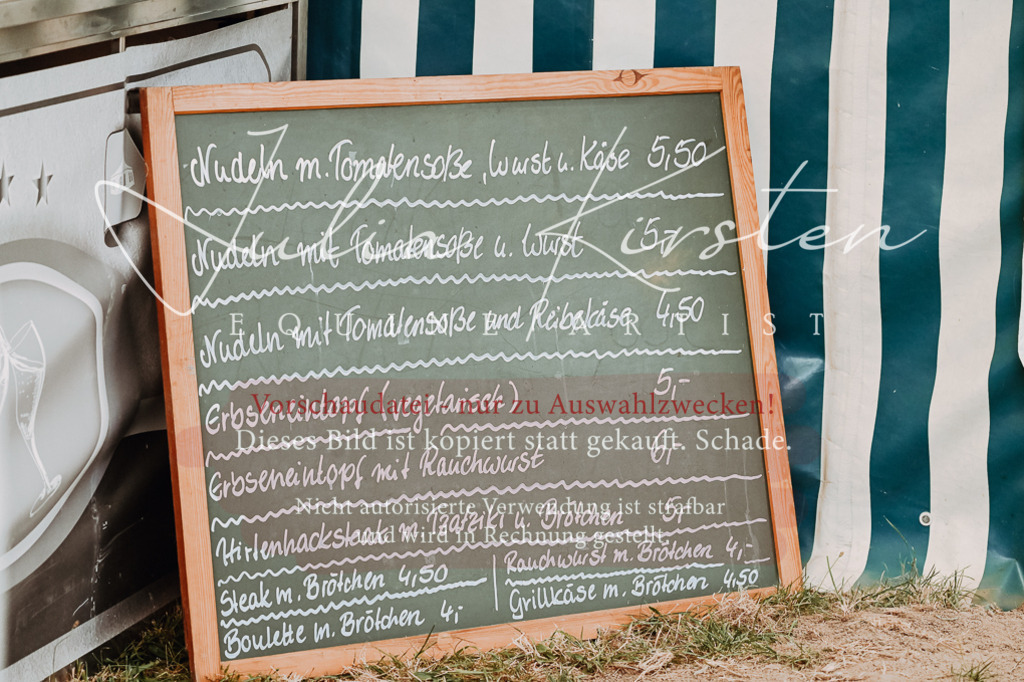 Nudeln m. Tomatensoße, Wurst u. Käse 5,50
Nudeln mit Tomatensoße u. Wurst 5,-
Julia Kirsten
EQUINE ARTIST
Nudeln mit Tomatensoße und Reibekäse 4,50
Erbseneintopf (vegetarisch) 5,-
Vorschaudatei - nur zu Auswahlzwecken!
Dieses Bild ist kopiert statt gekauft. Schade.
Erbseneintopf mit Rauchwurst 6,-
Nicht autorisierte Verwendung ist strafbar
und wird in Rechnung gestellt.
Hirtenhacksteak m. Tzatziki u. Brötchen 5,-
Steak m. Brötchen 4,50
Boulette m. Brötchen 4,-
Rauchwurst m. Brötchen 4,-
Grillkäse m. Brötchen 4,50